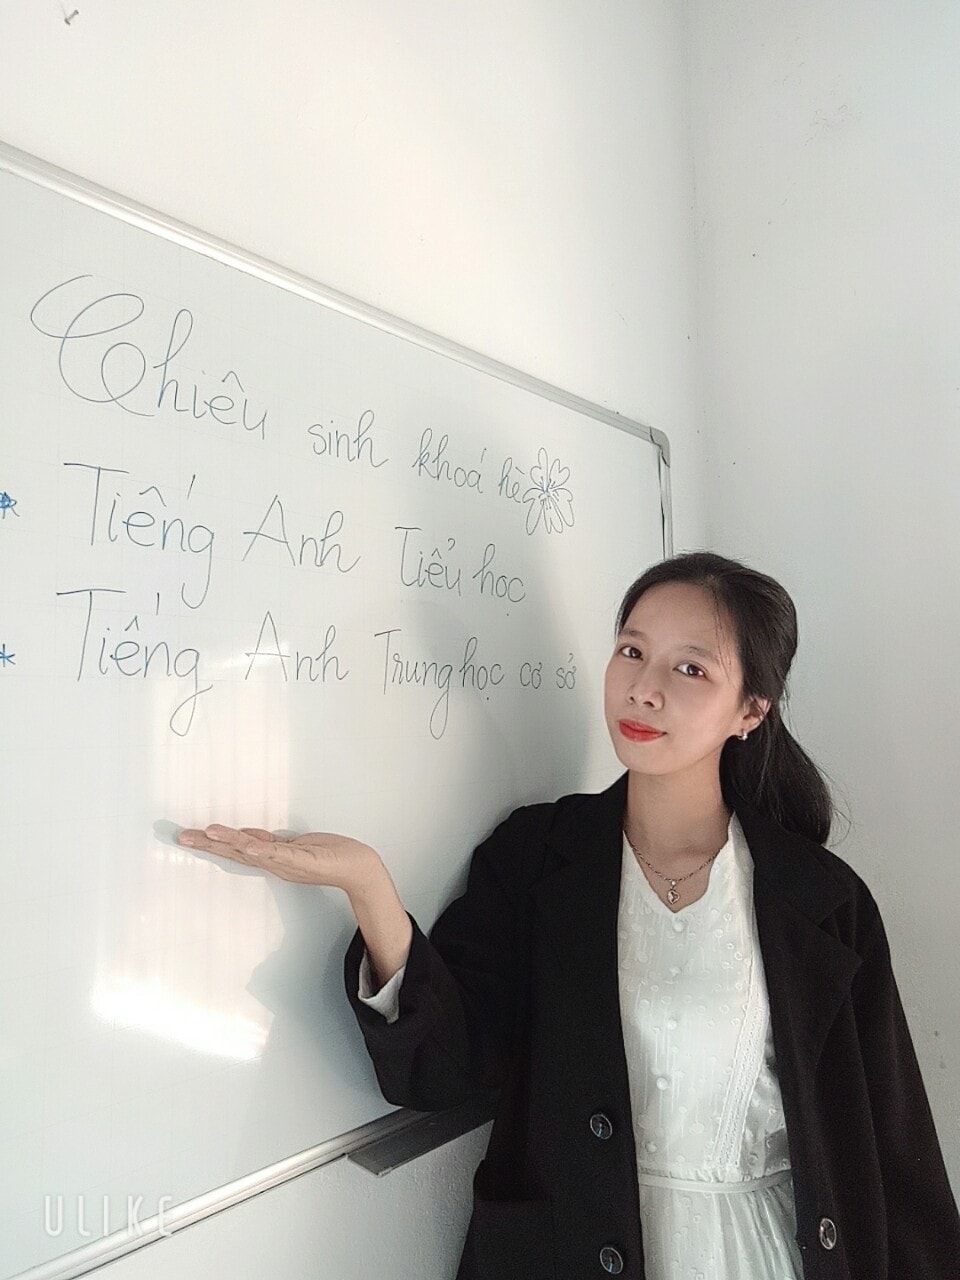 Chiêu sinh khoá hè
* Tiếng Anh Tiểu học
* Tiếng Anh Trung học cơ sở
ULIKE